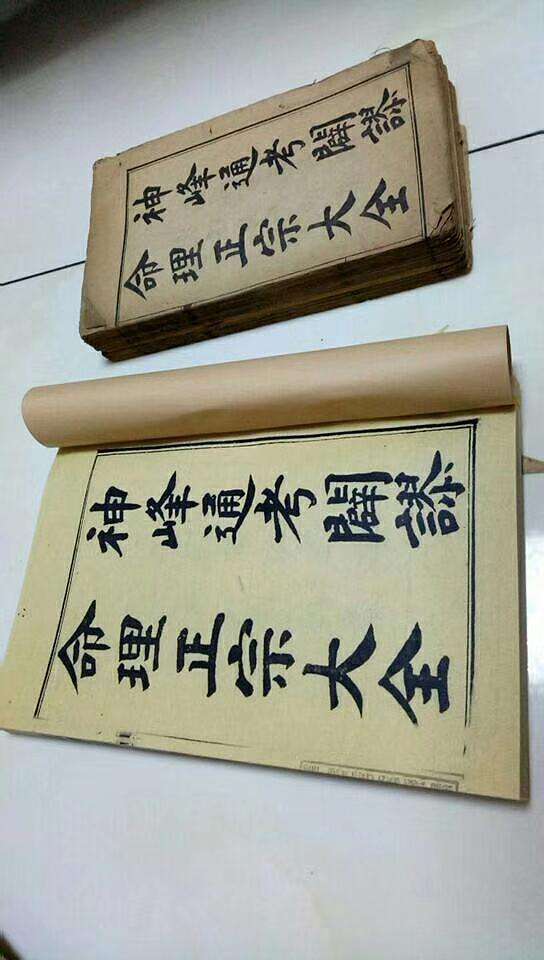 神峰通考闢謬
命理正宗大全
神峰通考闢謬
命理正宗大全